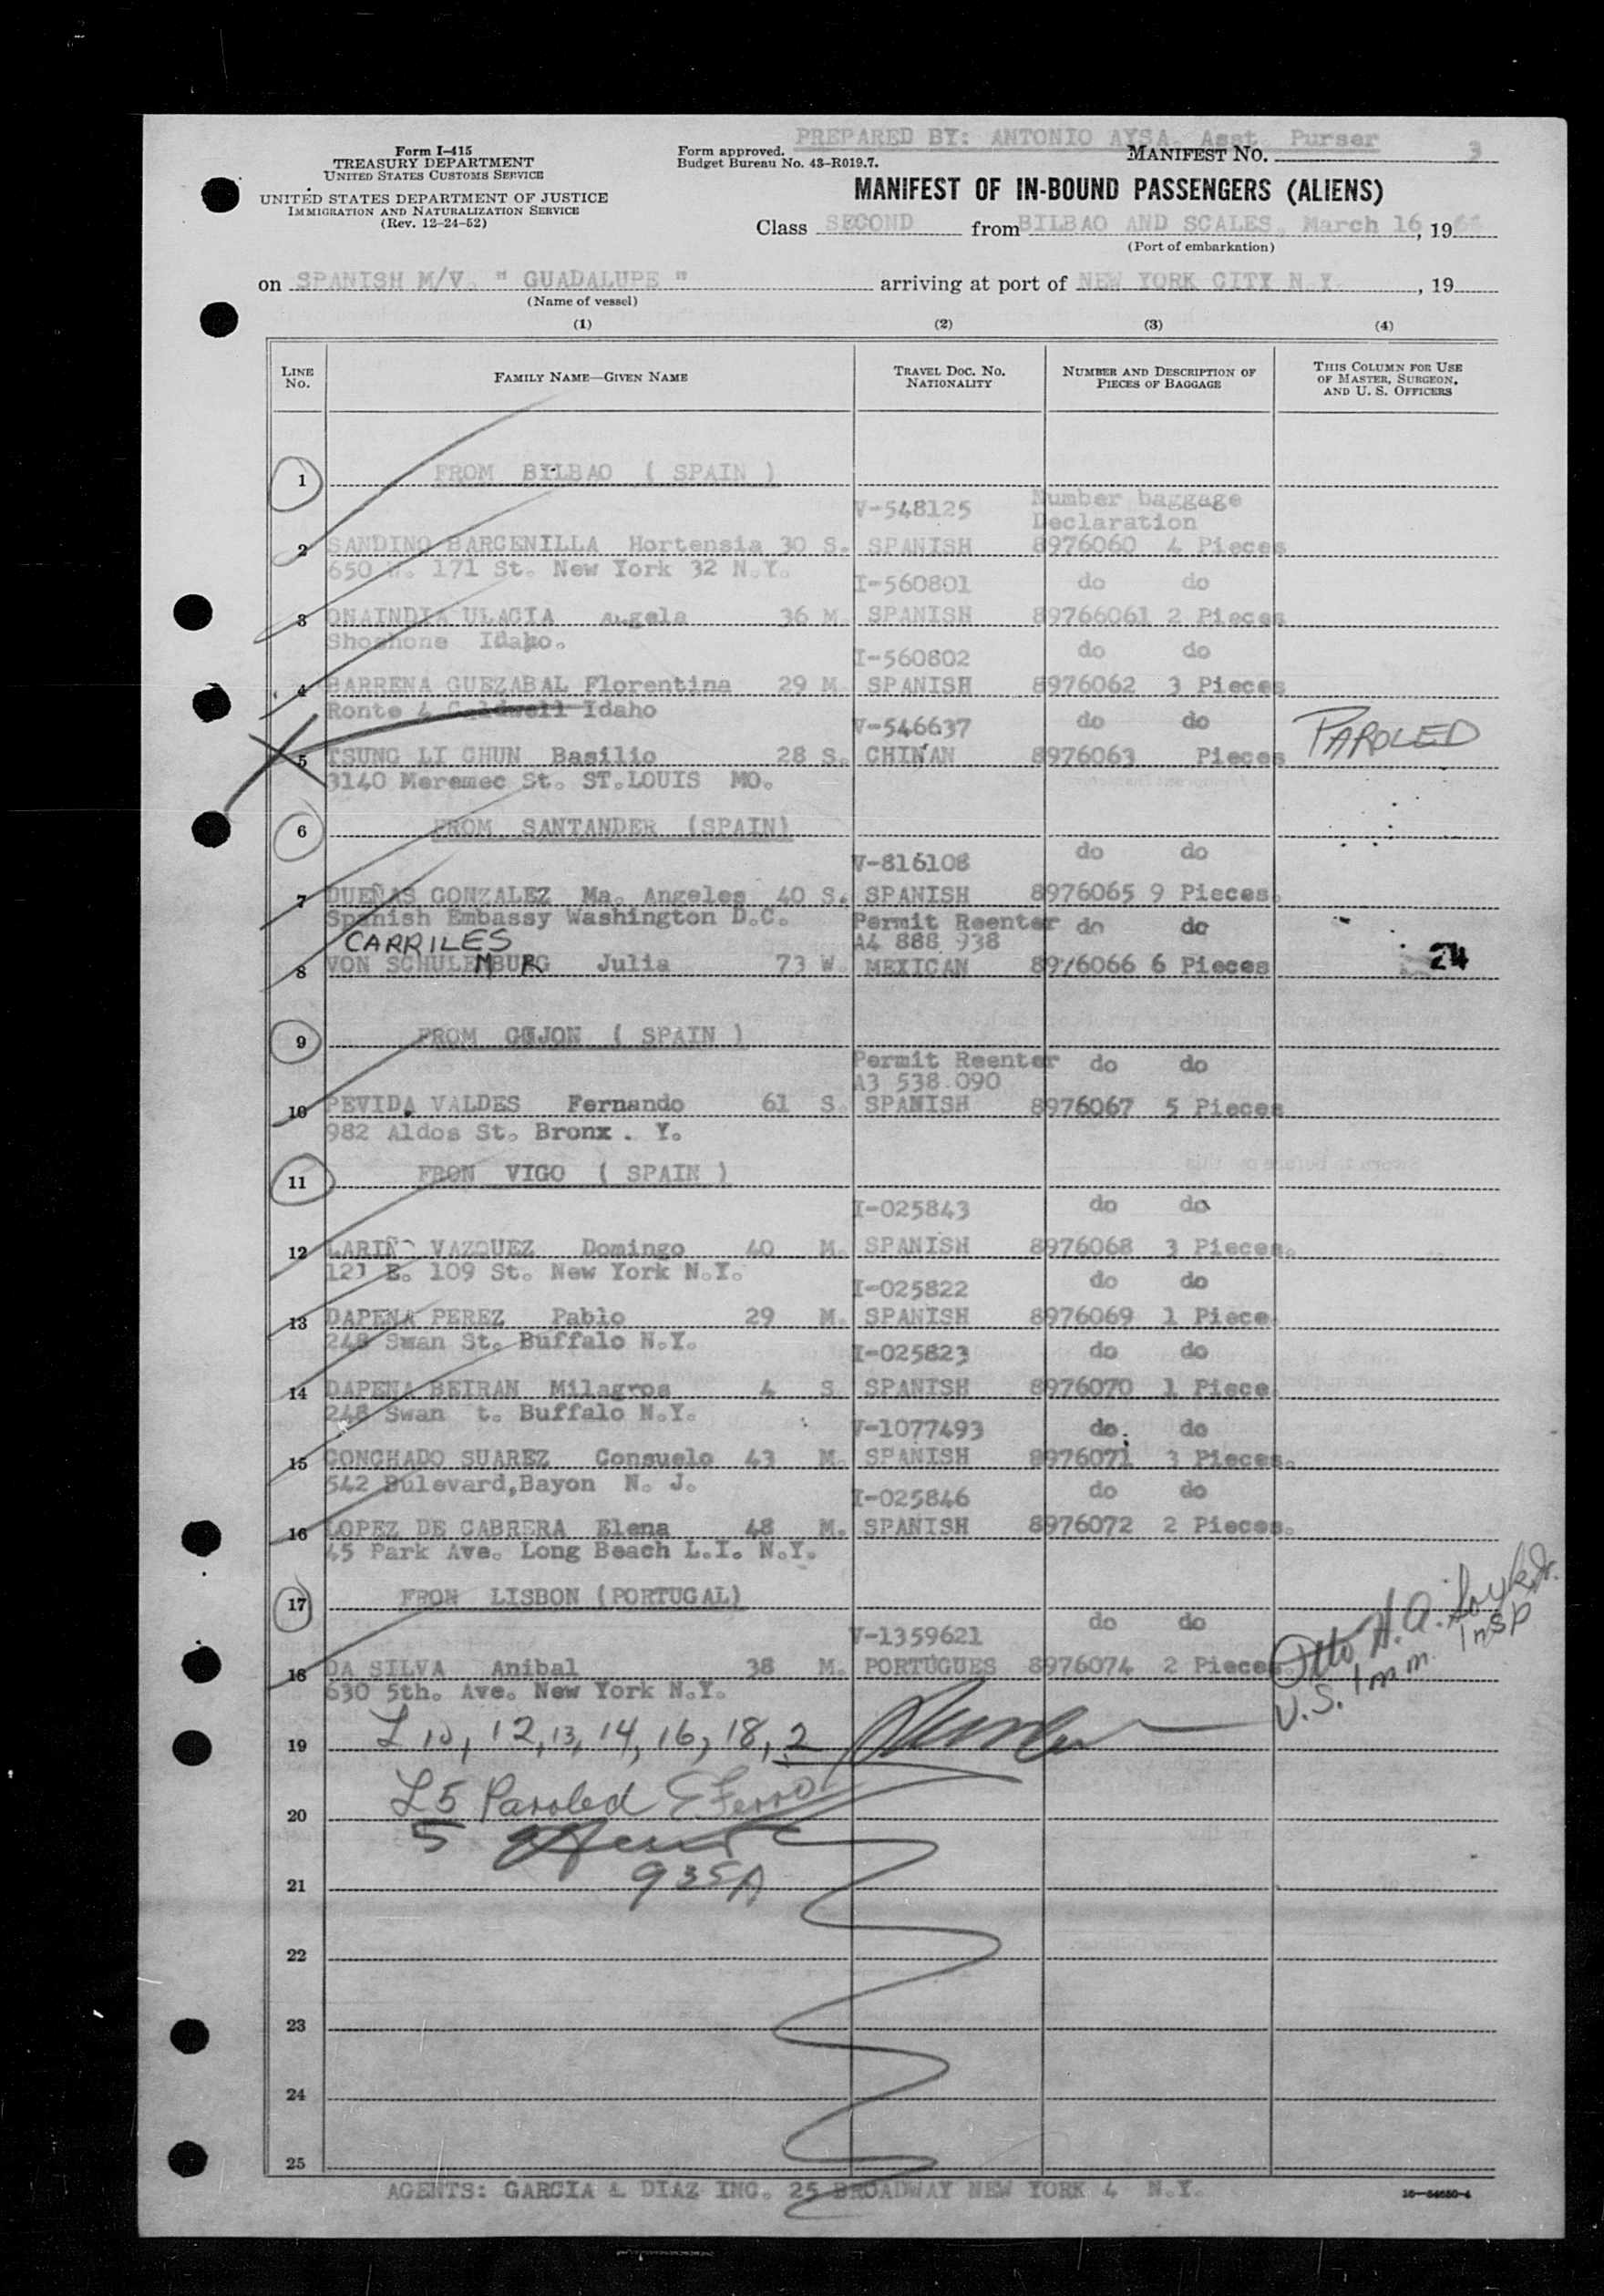 PREPARED BY: ANTONIO AYSA Asst. Purser
Form I-415
TREASURY DEPARTMENT
UNITED STATES CUSTOMS SERVICE
UNITED STATES DEPARTMENT OF JUSTICE
IMMIGRATION AND NATURALIZATION SERVICE
(Rev. 12-24-52)
Form approved.
Budget Bureau No. 43-R019.7.
MANIFEST NO. 3
MANIFEST OF IN-BOUND PASSENGERS (ALIENS)
Class SECOND from BILBAO AND SCALES. March 16, 19
(Port of embarkation)
on SPANISH M/V. " GUADALUPE " arriving at port of NEW YORK CITY N.Y. , 19
(Name of vessel)
(1) (2) (3) (4)
LINE NO. FAMILY NAME—GIVEN NAME TRAVEL DOC. NO. NATIONALITY NUMBER AND DESCRIPTION OF PIECES OF BAGGAGE THIS COLUMN FOR USE OF MASTER, SURGEON, AND U. S. OFFICERS
1 FROM BILBAO ( SPAIN )
V-548125 Number baggage Declaration
2 SANDINO BARCENILLA Hortensia 30 S. SPANISH 8976060 4 Pieces
650 W. 171 St. New York 32 N.Y.
I-560801 do do
3 ONAINDIA ULACIA Angela 36 M. SPANISH 89766061 2 Pieces
Shoshone Idaho.
I-560802 do do
4 BARRENA GUEZABAL Florentina 29 M. SPANISH 8976062 3 Pieces
Ronte 4 Caldwell Idaho
V-546637 do do
5 TSUNG LI CHUN Basilio 28 S. CHINAN 8976063 Pieces PAROLED
3140 Meremec St. ST.LOUIS MO.
6 FROM SANTANDER (SPAIN)
V-816108 do do
7 DUEÑAS GONZALEZ Ma. Angeles 40 S. SPANISH 8976065 9 Pieces.
Spanish Embassy Washington D.C.
Permit Reenter do do
CARRILES A4 888 938
8 VON SCHULEMBURG Julia 73 W. MEXICAN 8976066 6 Pieces 24
9 FROM GIJON ( SPAIN )
Permit Reenter do do
A3 538 090
10 PEVIDA VALDES Fernando 61 S. SPANISH 8976067 5 Pieces
982 Aldos St. Bronx . Y.
11 FRON VIGO ( SPAIN )
I-025843 do do
12 LARIÑO VAZQUEZ Domingo 40 M. SPANISH 8976068 3 Pieces.
121 E. 109 St. New York N.Y.
I-025822 do do
13 DAPENA PEREZ Pablo 29 M. SPANISH 8976069 1 Piece.
248 Swan St. Buffalo N.Y.
I-025823 do do
14 DAPENA BEIRAN Milagros 4 S SPANISH 8976070 1 Piece
248 Swan t. Buffalo N.Y.
V-1077493 do do
15 CONCHADO SUAREZ Consuelo 43 M. SPANISH 8976071 3 Pieces.
542 Bulevard,Bayon N. J.
I-025846 do do
16 LOPEZ DE CABRERA Elena 48 M. SPANISH 8976072 2 Pieces.
45 Park Ave. Long Beach L.I. N.Y.
17 FRON LISBON (PORTUGAL)
V-1359621 do do
18 DA SILVA Anibal 38 M. PORTUGUES 8976074 2 Pieces.
630 5th. Ave. New York N.Y.
Otto H. A.
U.S. Imm. Insp
19 L 10, 12, 13, 14, 16, 18, 2
20 L5 Paroled
5
21 935A
22
23
24
25
AGENTS: GARCIA & DIAZ INC. 25 BROADWAY NEW YORK 4 N.Y.